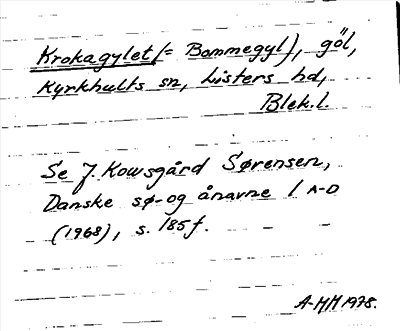 Krokagylet (= Bommegyl), göl,
Kyrkhults sn, Listers hd,
Blek.l.
Se J. Kousgård Sørensen,
Danske sø- og ånavne 1 A-D
(1968), s. 185 f.
A-MH 1978.